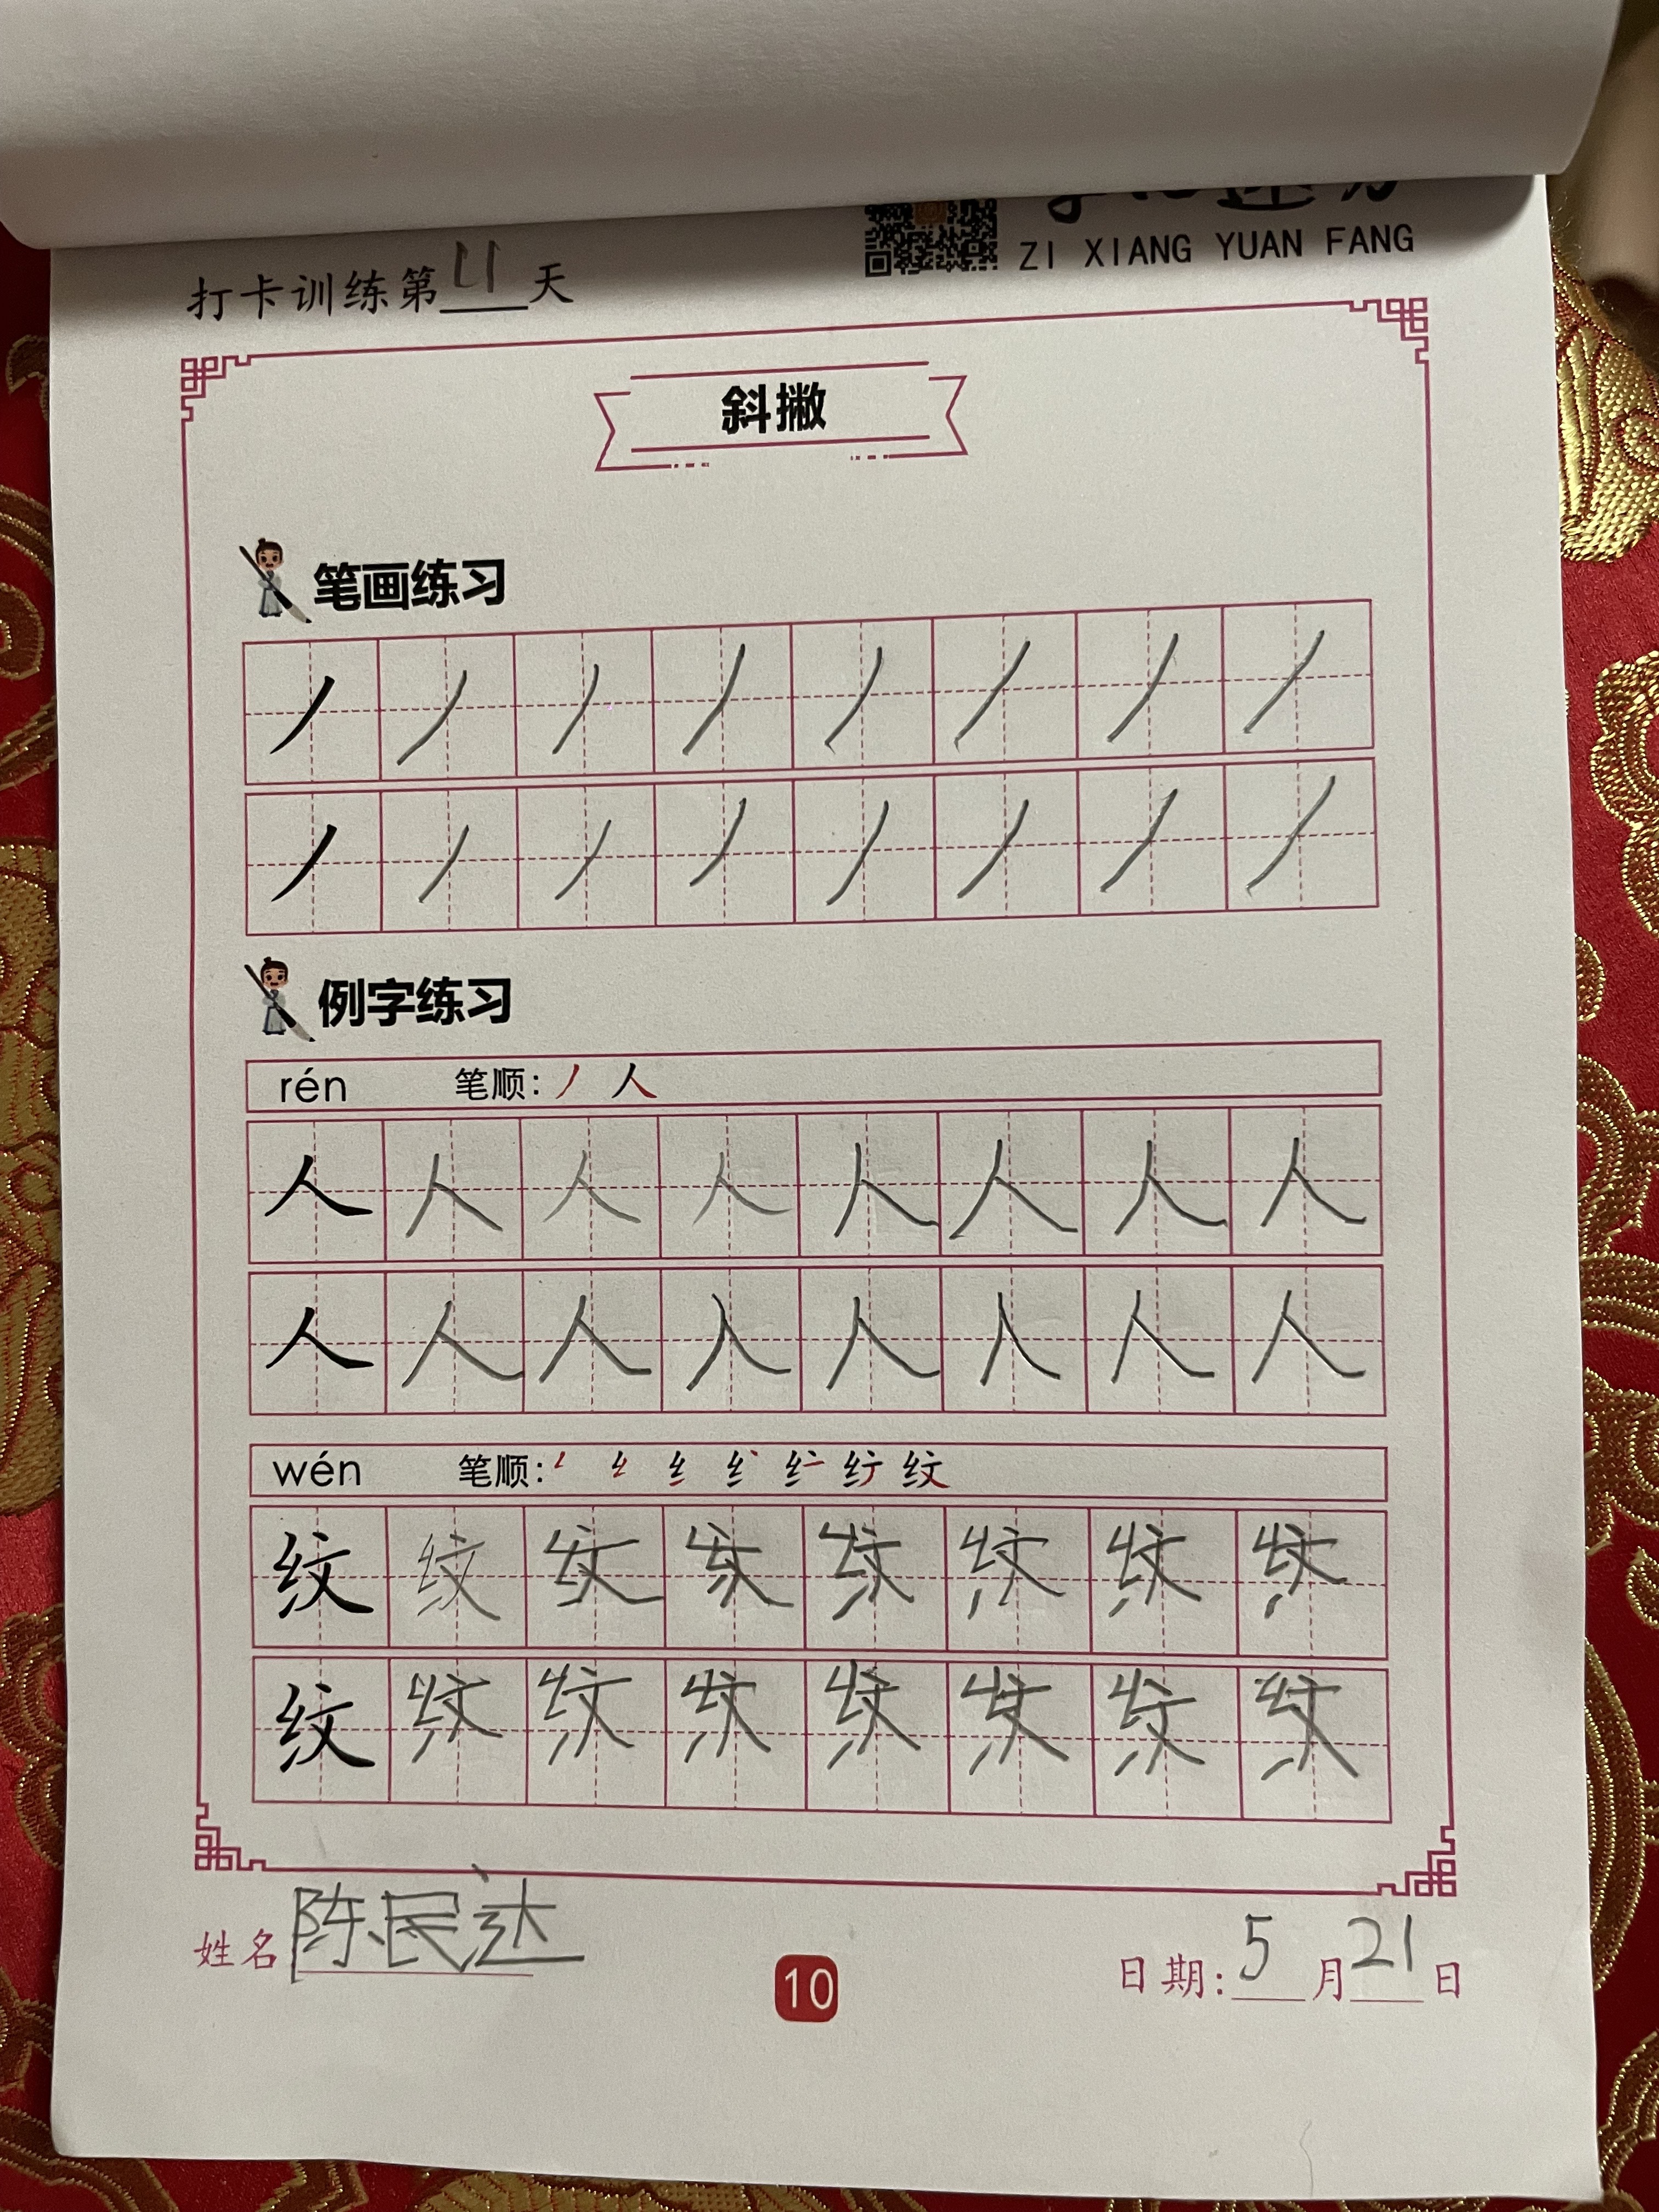 ZI XIANG YUAN FANG
打卡训练第11天
斜撇
笔画练习
例字练习
rén 笔顺: 丿 人
人 人 人 人 人 人 人 人
人 人 人 人 人 人 人 人
wén 笔顺: 纹
纹 纹 纹 纹 纹 纹 纹 纹
纹 纹 纹 纹 纹 纹 纹 纹
姓名 陈民达
10
日期: 5月21日